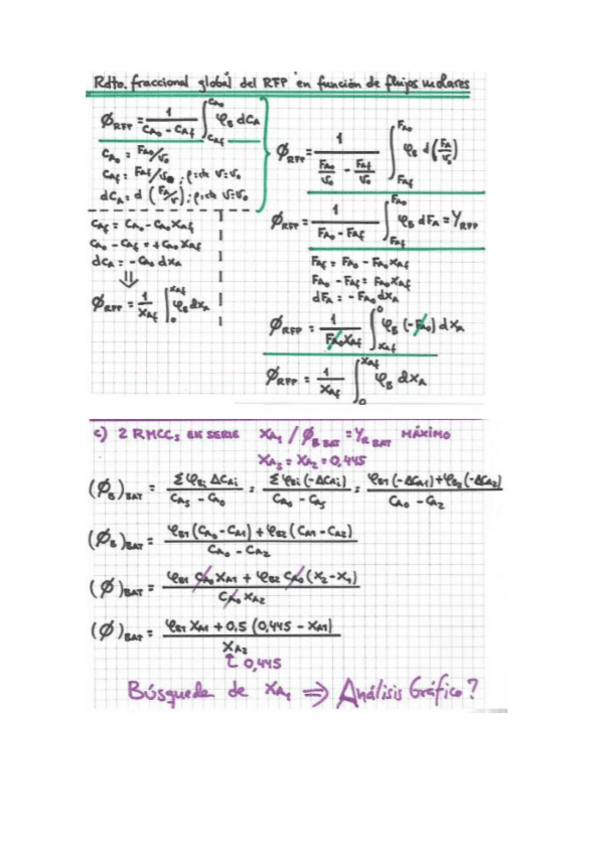 Rdto. fraccional global del RFP en función de flujos molares
Ø_RFP = 1/(C_A0 - C_Af) ∫_{C_Af}^{C_A0} φ_B dC_A
C_A0 = F_A0/v_0
C_Af = F_Af/v_0 ; ρ=cte v=v_0
dC_A = d (F_A/v) ; ρ=cte v=v_0
C_Af = C_A0 - C_A0 X_Af
C_A0 - C_Af = + C_A0 X_Af
dC_A = - C_A0 dX_A
⇓
Ø_RFP = 1/X_Af ∫_0^{X_Af} φ_B dX_A
Ø_RFP = 1/(F_A0/v_0 - F_Af/v_0) ∫_{F_Af}^{F_A0} φ_B d(F_A/v_0)
Ø_RFP = 1/(F_A0 - F_Af) ∫_{F_Af}^{F_A0} φ_B dF_A = Y_RFP
F_Af = F_A0 - F_A0 X_Af
F_A0 - F_Af = F_A0 X_Af
dF_A = - F_A0 dX_A
Ø_RFP = 1/(F_A0 X_Af) ∫_{X_Af}^0 φ_B (-F_A0) dX_A
Ø_RFP = 1/X_Af ∫_0^{X_Af} φ_B dX_A
c) 2 RMCCs EN SERIE X_A1 / Ø_B BAT = Y_R BAT MÁXIMO
X_As = X_A2 = 0,445
(Ø_B)_BAT = Σ φ_Bi ΔC_Ai / (C_As - C_A0) = Σ φ_Bi (-ΔC_Ai) / (C_A0 - C_As) = φ_B1 (-ΔC_A1) + φ_B2 (-ΔC_A2) / (C_A0 - C_A2)
(Ø_B)_BAT = φ_B1 (C_A0 - C_A1) + φ_B2 (C_A1 - C_A2) / (C_A0 - C_A2)
(Ø)_BAT = φ_B1 C_A0 X_A1 + φ_B2 C_A0 (X_2 - X_1) / (C_A0 X_A2)
(Ø)_BAT = φ_B1 X_A1 + 0,5 (0,445 - X_A1) / X_A2
↑ 0,445
Búsqueda de X_A1 ⇒ Análisis Gráfico?